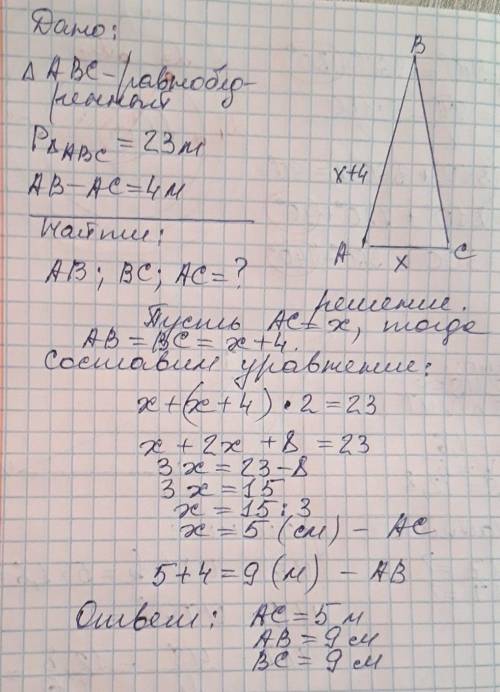 Дано:
B
△ABC - равнобед-
ренный
P△ABC = 23м
x+4
AB-AC=4м
Найти:
A
x
C
AB; BC; AC=?
решение.
Пусть AC=x, тогда
AB=BC=x+4.
Составим уравнение:
x+(x+4)•2=23
x+2x+8=23
3x=23-8
3x=15
x=15:3
x=5 (см) - AC
5+4=9 (м) - AB
Ответ: AC=5 м
AB=9 см
BC=9 см